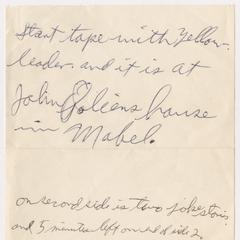 Start tape with yellow
leader. and it is at
John Ooliens house
in Mabel.
on second side is two joke stories
and 5 minutes left on end side 2